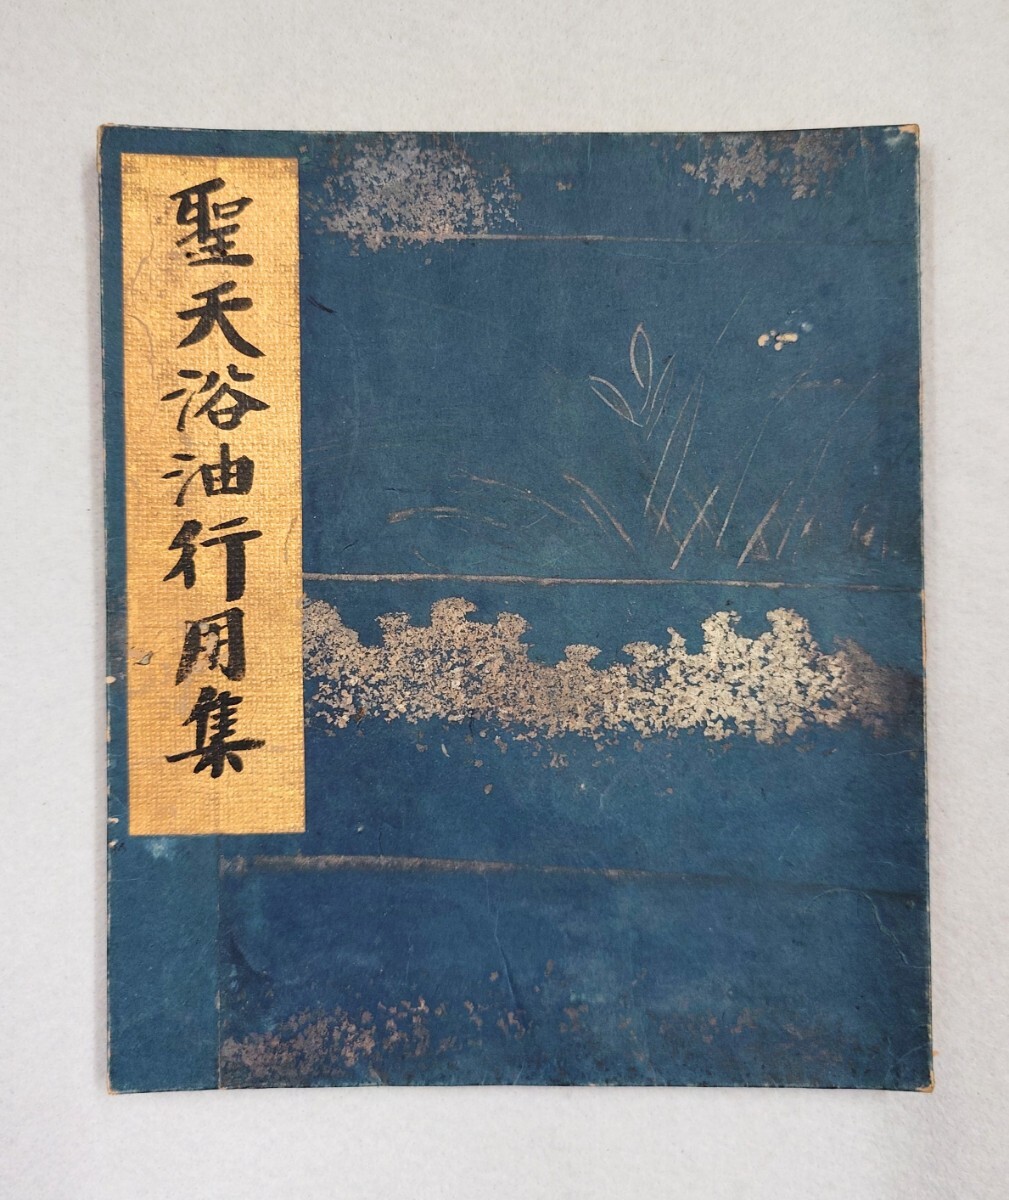 聖天浴油行用集